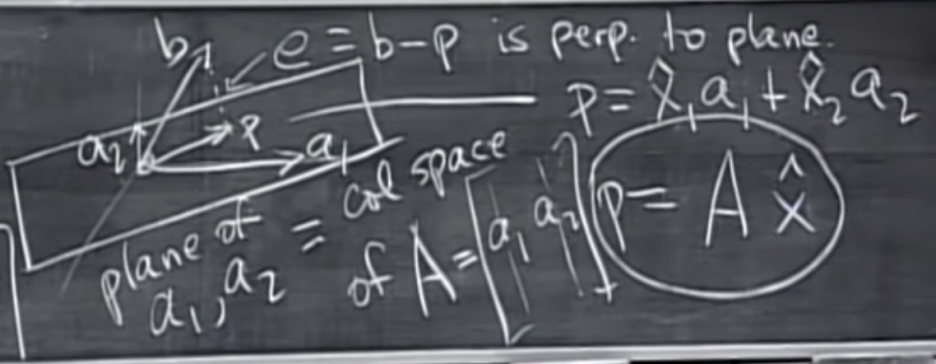 b e = b - p is perp. to plane.
p = x̂₁a₁ + x̂₂a₂
a₂ p a₁
plane of a₁, a₂ = col space of A = [a₁ a₂]
p = A x̂